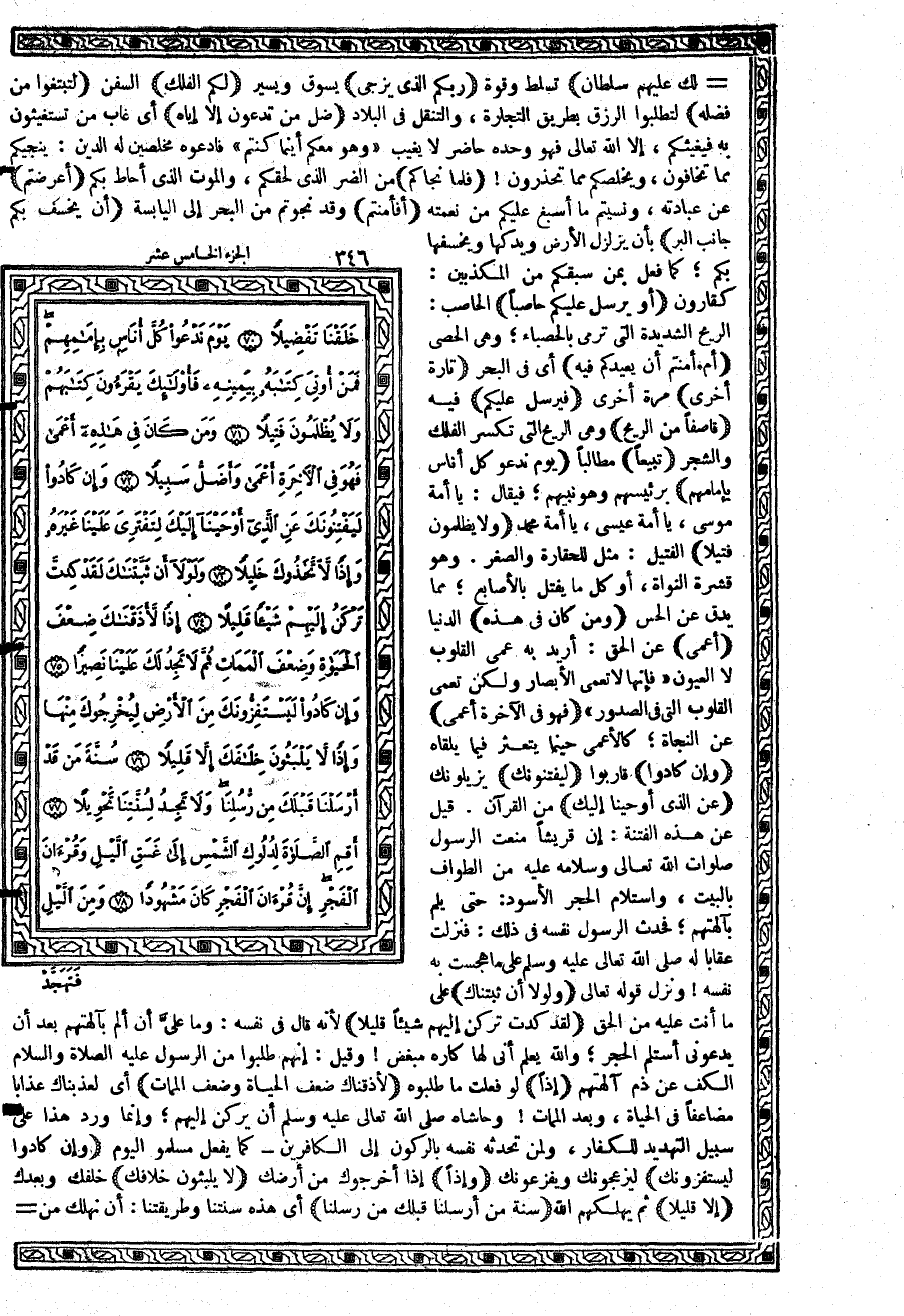 = لك عليهم سلطان) تسلط وقوة (ربكم الذى يزجى) يسوق ويسير (لكم الفلك) السفن (لتبتغوا من
فضله) لتطلبوا الرزق بطريق التجارة ، والتنقل فى البلاد (ضل من تدعون إلا إياه) أى غاب من تستغيثون
به فيغيثكم ، إلا الله تعالى فهو وحده حاضر لا يغيب «وهو معكم أينما كنتم» فادعوه مخلصين له الدين : ينجيكم
مما تخافون ، ويخلصكم مما تحذرون ! (فلما نجاكم) من الضر الذى لحقكم ، والموت الذى أحاط بكم (أعرضتم)
عن عبادته ، ونسيتم ما أسبغ عليكم من نعمته (أفأمنتم) وقد نجوتم من البحر إلى اليابسة (أن يخسف بكم
جانب البر) بأن يزلزل الأرض ويدكها ويخسفها
بكم ؛ كما فعل بمن سبقكم من المكذبين :
كقارون (أو يرسل عليكم حاصباً) الحاصب :
الريح الشديدة التى ترمى بالحصباء ؛ وهى الحصى
(أم ءأمنتم أن يعيدكم فيه) أى فى البحر (تارة
أخرى) مرة أخرى (فيرسل عليكم) فيه
(قاصفاً من الريح) وهى الريح التى تكسر الفلك
والشجر (تبيعاً) مطالباً (يوم ندعو كل أناس
بإمامهم) برئيسهم وهو نبيهم ؛ فيقال : يا أمة
موسى ، يا أمة عيسى ، يا أمة محمد (ولا يظلمون
فتيلا) الفتيل : مثل للحقارة والصغر . وهو
قشرة النواة ، أو كل ما يفتل بالأصابع ؛ مما
يدق عن الحس (ومن كان فى هذه) الدنيا
(أعمى) عن الحق : أريد به عمى القلوب
لا العيون «فإنها لا تعمى الأبصار ولكن تعمى
القلوب التى فى الصدور» (فهو فى الآخرة أعمى)
عن النجاة ؛ كالأعمى حينما يتعثر فيما يلقاه
(وإن كادوا) قاربوا (ليفتنونك) يزيلونك
(عن الذى أوحينا إليك) من القرآن . قيل
عن هذه الفتنة : إن قريشاً منعت الرسول
صلوات الله تعالى وسلامه عليه من الطواف
بالبيت ، واستلام الحجر الأسود: حتى يلم
بآلهتهم ؛ فحدث الرسول نفسه فى ذلك : فنزلت
عقابا له صلى الله تعالى عليه وسلم على ما هجست به
نفسه ! ونزل قوله تعالى (ولولا أن ثبتناك) على
الجزء الخامس عشر ٣٤٦
خَلَقْنَا تَفْضِيلًا ﴿٧٠﴾ يَوْمَ نَدْعُوا۟ كُلَّ أُنَاسٍ بِإِمَـٰمِهِمْ ۖ
فَمَنْ أُوتِىَ كِتَـٰبَهُۥ بِيَمِينِهِۦ فَأُو۟لَـٰٓئِكَ يَقْرَءُونَ كِتَـٰبَهُمْ
وَلَا يُظْلَمُونَ فَتِيلًا ﴿٧١﴾ وَمَن كَانَ فِى هَـٰذِهِۦٓ أَعْمَىٰ
فَهُوَ فِى ٱلْـَٔاخِرَةِ أَعْمَىٰ وَأَضَلُّ سَبِيلًا ﴿٧٢﴾ وَإِن كَادُوا۟
لَيَفْتِنُونَكَ عَنِ ٱلَّذِىٓ أَوْحَيْنَآ إِلَيْكَ لِتَفْتَرِىَ عَلَيْنَا غَيْرَهُۥ
وَإِذًا لَّٱتَّخَذُوكَ خَلِيلًا ﴿٧٣﴾ وَلَوْلَآ أَن ثَبَّتْنَـٰكَ لَقَدْ كِدتَّ
تَرْكَنُ إِلَيْهِمْ شَيْـًٔا قَلِيلًا ﴿٧٤﴾ إِذًا لَّأَذَقْنَـٰكَ ضِعْفَ
ٱلْحَيَوٰةِ وَضِعْفَ ٱلْمَمَاتِ ثُمَّ لَا تَجِدُ لَكَ عَلَيْنَا نَصِيرًا ﴿٧٥﴾
وَإِن كَادُوا۟ لَيَسْتَفِزُّونَكَ مِنَ ٱلْأَرْضِ لِيُخْرِجُوكَ مِنْهَا
وَإِذًا لَّا يَلْبَثُونَ خِلَـٰفَكَ إِلَّا قَلِيلًا ﴿٧٦﴾ سُنَّةَ مَن قَدْ
أَرْسَلْنَا قَبْلَكَ مِن رُّسُلِنَا ۖ وَلَا تَجِدُ لِسُنَّتِنَا تَحْوِيلًا ﴿٧٧﴾
أَقِمِ ٱلصَّلَوٰةَ لِدُلُوكِ ٱلشَّمْسِ إِلَىٰ غَسَقِ ٱلَّيْلِ وَقُرْءَانَ
ٱلْفَجْرِ ۖ إِنَّ قُرْءَانَ ٱلْفَجْرِ كَانَ مَشْهُودًا ﴿٧٨﴾ وَمِنَ ٱلَّيْلِ
فَتَهَجَّدْ
ما أنت عليه من الحق (لقد كدت تركن إليهم شيئاً قليلا) لأنه قال فى نفسه : وما علىَّ أن ألم بآلهتهم بعد أن
يدعونى أستلم الحجر ؛ والله يعلم أنى لها كاره مبغض ! وقيل : إنهم طلبوا من الرسول عليه الصلاة والسلام
الكف عن ذم آلهتهم (إذاً) لو فعلت ما طلبوه (لأذقناك ضعف الحياة وضعف الممات) أى لعذبناك عذابا
مضاعفاً فى الحياة ، وبعد الممات ! وحاشاه صلى الله تعالى عليه وسلم أن يركن إليهم ؛ وإنما ورد هذا على
سبيل التهديد للكفار ، ولمن تحدثه نفسه بالركون إلى الكافرين ـ كما يفعل مسلمو اليوم (وإن كادوا
ليستفزونك) ليزعجونك ويفزعونك (وإذاً) إذا أخرجوك من أرضك (لا يلبثون خلافك) خلفك وبعدك
(إلا قليلا) ثم يهلكهم الله (سنة من أرسلنا قبلك من رسلنا) أى هذه سنتنا وطريقتنا : أن نهلك من =